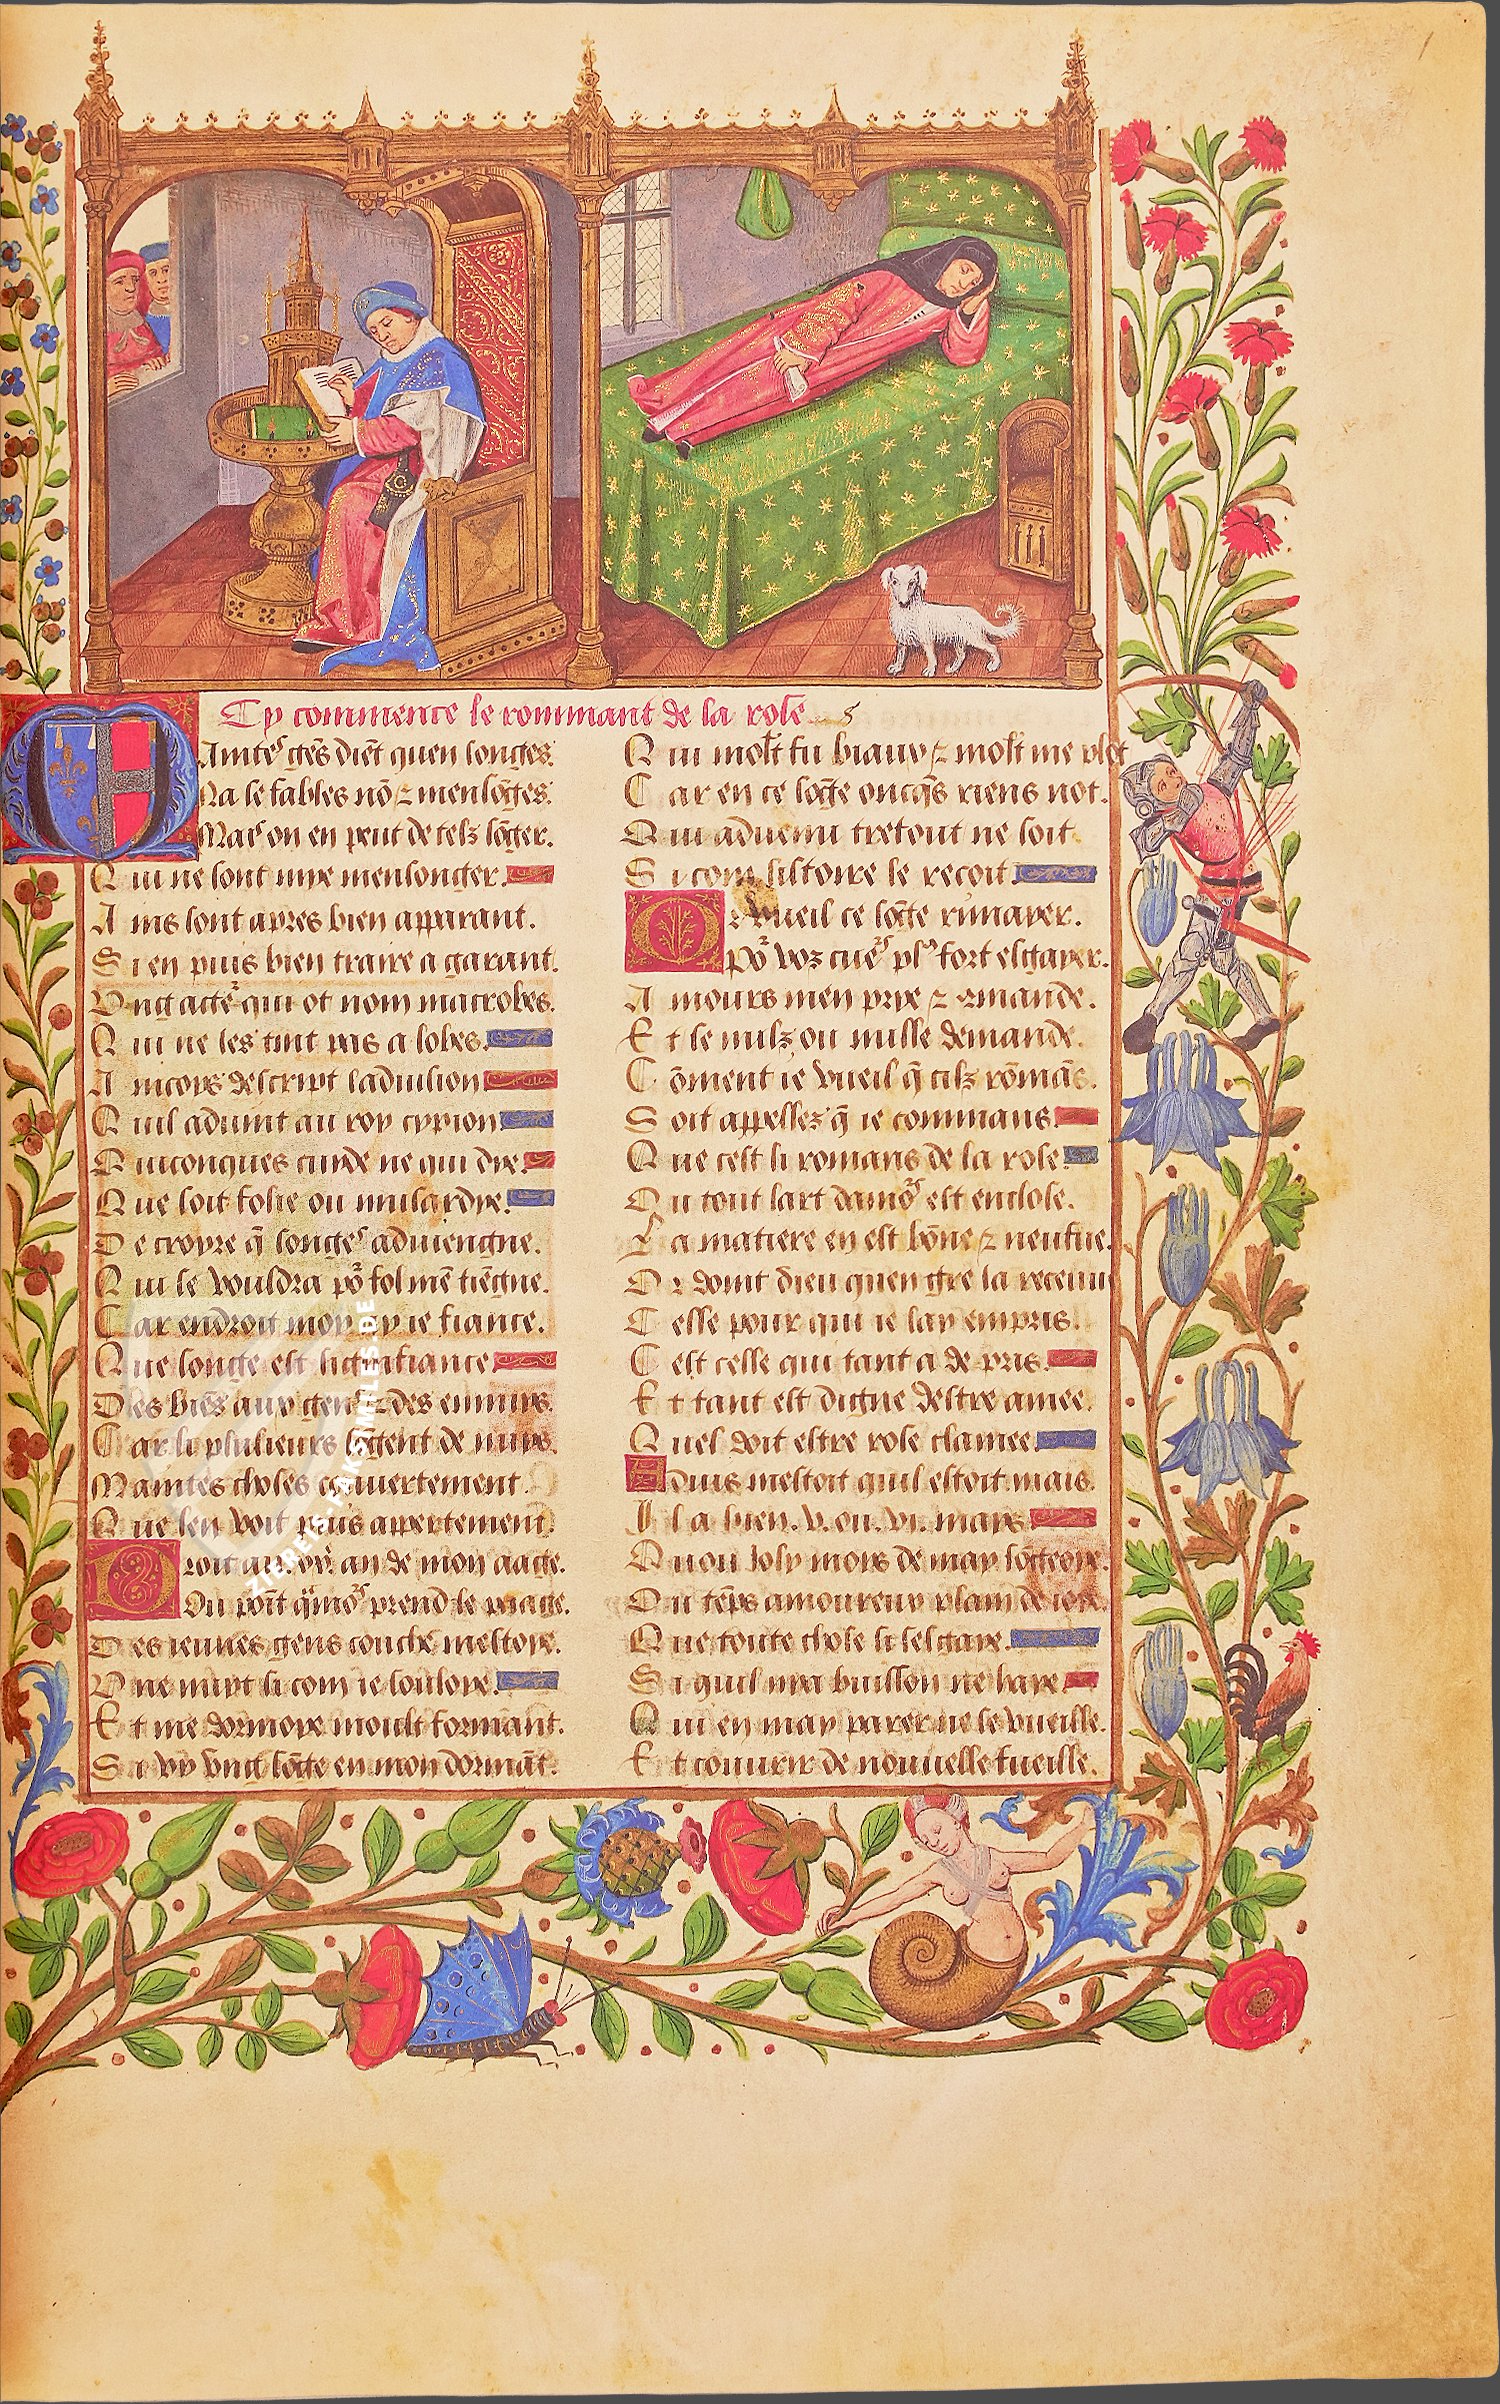 Cy commence le rommant de la rose
Maintes gēs diēt quen songes
Na se fables nō ⁊ mensōges
Mais on en peut de telz sōger
Qui ne sont mye mensonger
Ains sont apres bien apparant
Si en puis bien traire a garant
Ung acte qui ot nom macrobes
Qui ne les tint pas a lobes
Aincoys descript laduision
Quil aduint au roy cypion
Quiconques cuide ne qui dye
Que soit folie ou musardye
De croyre q̄ songes aduiengne
Qui se vouldra po fol mē tiēgne
Car endroit moy ay ie fiance
Que songe est signifiance
Des biēs aux gens ⁊ des ennuys
Car li plusieurs sōgent de nuys
Maintes choses couuertement
Que len voit puis appertement
Droit au an de mon aage
Ou poīt qamōs prend le paage
Des ieunes gens couche mestoye
Une nuyt si com ie souloye
Et me dormoye moult formant
Si vy vng sōge en mon dormāt
Qui molt fu biaux ⁊ molt me plot
Car en ce sōge oncq̄s riens not
Qui aduenu tretout ne soit
Si com listoire le recoit
Or vueil ce sōge rimayer
Po voz cues pls fort esgayer
Amours men prye ⁊ cmande
Et se nulz ou nulle demande
Cōment ie vueil q̄ cilz rōmās
Soit appellez q̄ ie commans
Que cest li romans de la rose
Ou tout lart damos est enclose
La matiere en est bōne ⁊ neufue
Or doint dieu quen gre la receuu
Celle pour qui ie lay empris
Cest celle qui tant a de pris
Et tant est digne destre amee
Quel doit estre rose clamee
Aduis mestoit quil estoit mais
Il a bien .v. ou .vi. mays
Quou ioly moys de may sōgeoye
Ou tēps amoureux plain de ioye
Que toute chose si sesgaye
Si quil nya buisson ne haye
Qui en may parer ne se vueille
Et couurir de nouuelle fueille
ZIEREIS FAKSIMILES.DE